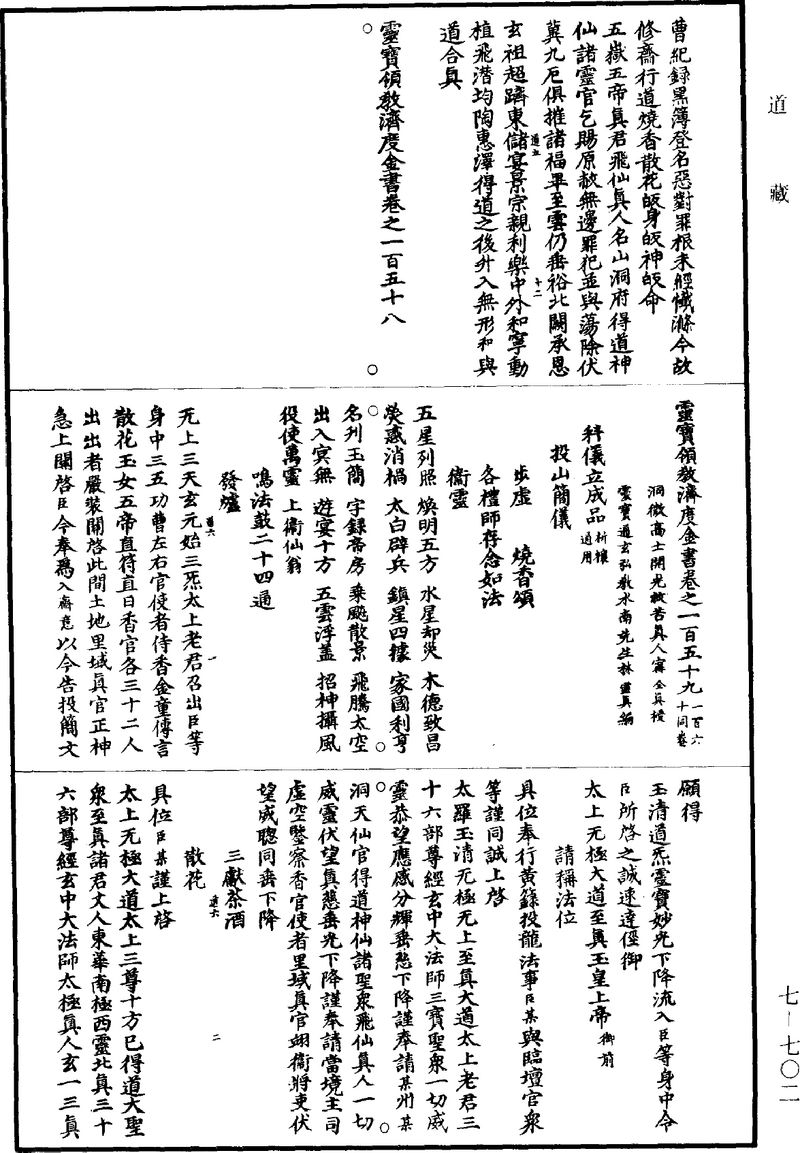 道藏
曹紀録黑簿登名惡對罪根未經懺滌今故
修齋行道燒香散花皈身皈神皈命
五嶽五帝眞君飛仙眞人名山洞府得道神
仙諸靈官乞賜原赦無邊罪犯並與蕩除伏
冀九厄俱摧諸福畢至雲仍垂裕北闕承恩
玄祖超躋東儲宴景宗親利樂中外和寧動
植飛潛均陶惠澤得道之後升入無形和與
道合眞
靈寶領教濟度金書卷之一百五十八
靈寶領教濟度金書卷之一百五十九 一百六十同卷
洞微高士開光救苦眞人甯全眞授
靈寶通玄弘教水南先生林靈眞編
科儀立成品 祈禳通用
投山簡儀
步虛 燒香頌
各禮師存念如法
衞靈
五星列照 煥明五方 水星却災 木德致昌
熒惑消禍 太白辟兵 鎮星四據 家國利亨
名刋玉簡 字録帝房 乘飈散景 飛騰太空
出入冥無 遊宴十方 五雲浮蓋 招神攝風
役使萬靈 上衞仙翁
鳴法鼓二十四通
發爐
无上三天玄元始三炁太上老君召出臣等
身中三五功曹左右官使者侍香金童傳言
散花玉女五帝直符直日香官各三十二人
出出者嚴裝關啓此間土地里域眞官正神
急上關啓臣今奉爲入齋意以今告投簡文
願得
玉清道炁靈寶妙光下降流入臣等身中令
臣所啓之誠速達徑御
太上无極大道至眞玉皇上帝 御前
請稱法位
具位奉行黄籙投龍法事臣某與臨壇官衆
等謹同誠上啓
太羅玉清无極无上至眞大道太上老君三
十六部尊經玄中大法師三寶聖衆一切威
靈恭望應感分輝垂慈下降謹奉請某州某
洞天仙官得道神仙諸聖衆飛仙眞人一切
威靈伏望眞慈垂光下降謹奉請當境主司
虛空鑒察香官使者里域眞官翊衞將吏伏
望咸聰同垂下降
三獻茶酒
散花
具位臣某謹上啓
太上无極大道太上三尊十方已得道大聖
衆至眞諸君丈人東華南極西靈北眞三十
六部尊經玄中大法師太極眞人玄一三眞
七－七〇二